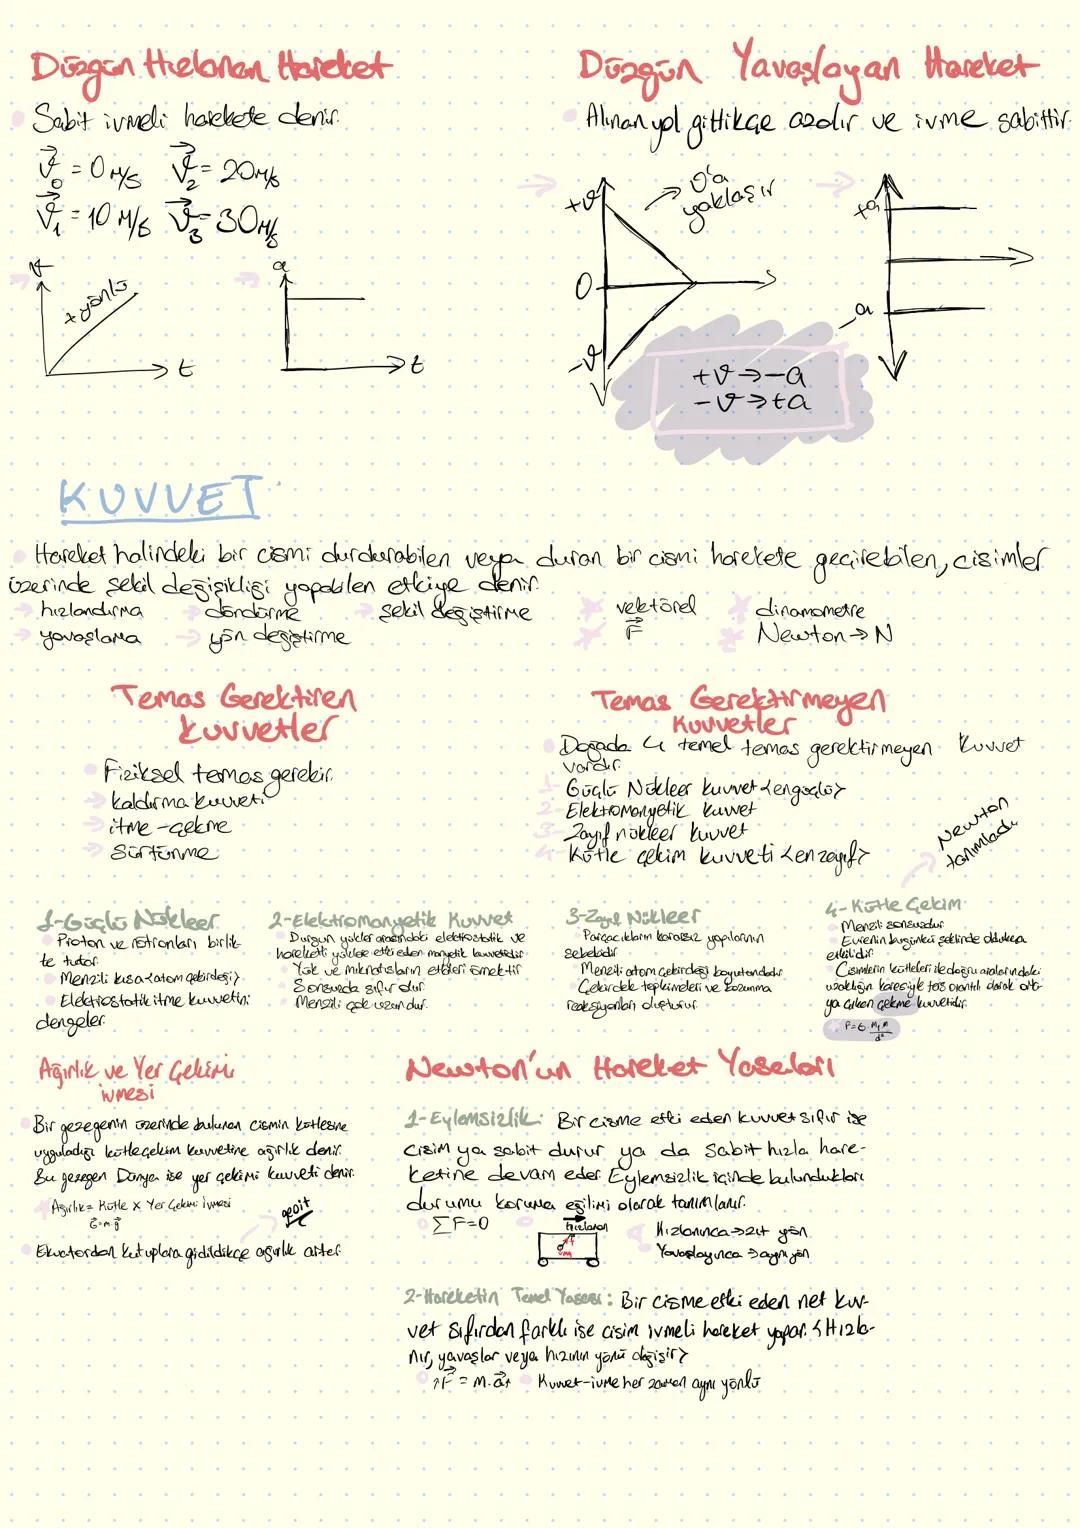 Düzgün Hızlanan Hareket
Sabit ivmeli harekete denir.
v₀ = 0 m/s v₂ = 20 m/s
v₁ = 10 m/s v₃ = 30 m/s
v
+ yönlü
t
a
t
Düzgün Yavaşlayan Hareket
Alınan yol gittikçe azalır ve ivme sabittir.
+v
0'a
yaklaşır
0
-v
+a
-a
+v → -a
-v → +a
KUVVET
Hareket halindeki bir cismi durdurabilen veya duran bir cismi harekete geçirebilen, cisimler
üzerinde şekil değişikliği yapabilen etkiye denir.
hızlandırma döndürme şekil değiştirme
yavaşlama yön değiştirme
vektörel dinamometre
F Newton → N
Temas Gerektiren
Kuvvetler
Fiziksel temas gerekir.
kaldırma kuvveti
itme - çekme
Sürtünme
Temas Gerektirmeyen
Kuvvetler
Doğada 4 temel temas gerektirmeyen kuvvet
vardır.
1- Güçlü Nükleer kuvvet <en güçlü>
2- Elektromanyetik kuvvet
3- Zayıf nükleer kuvvet
4- Kütle çekim kuvveti <en zayıf>
Newton
tanımladı
1-Güçlü Nükleer
Proton ve nötronları birlik-
te tutar.
Menzili kısa <atom çekirdeği>
Elektrostatik itme kuvvetini
dengeler.
2-Elektromanyetik Kuvvet
Durgun yükler arasındaki elektrostatik ve
hareketli yüklere etki eden manyetik kuvvetidir
Yük ve mıknatısların etkileri örnektir
Sonsuzda sıfırdır
Menzili çok uzundur.
3-Zayıf Nükleer
Parçacıkların kararsız yapılarının
sebebidir
Menzili atom çekirdeği boyutundadır
Çekirdek tepkimeleri ve bozunma
reaksiyonları oluşturur.
4- Kütle Çekim
Menzili sonsuzdur
Evrenin bugünkü şeklinde oldukça
etkilidir
Cisimlerin kütleleri ile doğru aralarındaki
uzaklığın karesiyle ters orantılı olarak orta-
ya çıkan çekme kuvvetidir.
F=G m₁m/d²
Ağırlık ve Yer Çekimi
ivmesi
Bir gezegenin üzerinde bulunan cismin kütlesine
uyguladığı kütle çekim kuvvetine ağırlık denir.
Bu gezegen Dünya ise yer çekimi kuvveti denir.
Ağırlık = Kütle x Yer Çekimi İvmesi
G=m.g
geoit
Ekvatordan kutuplara gidildikçe ağırlık artar.
Newton'un Hareket Yasaları
1-Eylemsizlik: Bir cisme etki eden kuvvet sıfır ise
cisim ya sabit durur ya da sabit hızla hare-
ketine devam eder. Eylemsizlik içinde bulundukları
durumu koruma eğilimi olarak tanımlanır.
ΣF=0
hızlanan
Hızlanınca → zıt yön
Yavaşlayınca → aynı yön
2-Hareketin Temel Yasası: Bir cisme etki eden net kuv-
vet sıfırdan farklı ise cisim ivmeli hareket yapar. <Hızla-
nır, yavaşlar veya hızının yönü değişir>
↑F = m.a↑ Kuvvet-ivme her zaman aynı yönlü